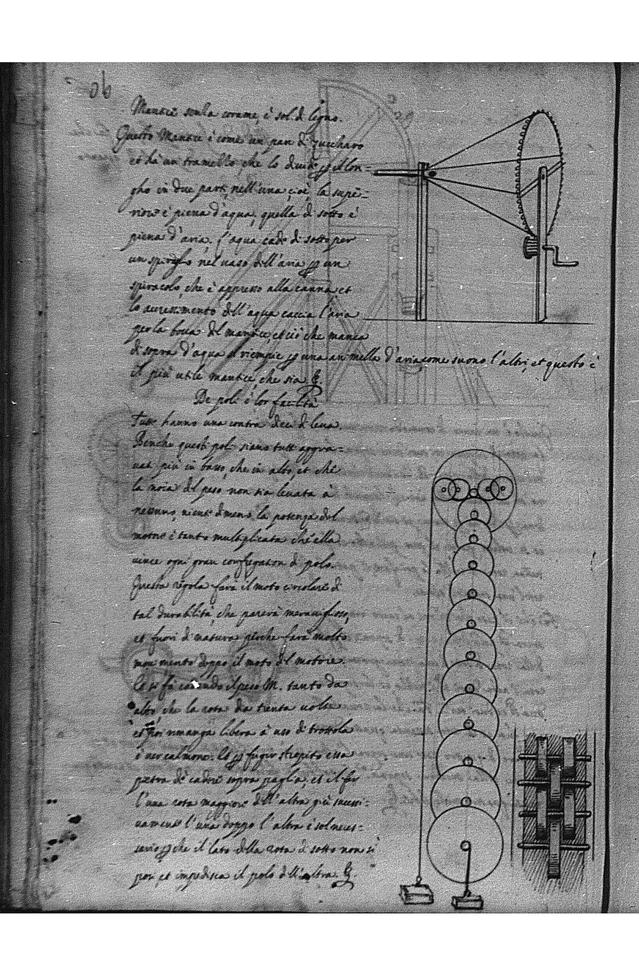 Mantici senza corame, e sol di legno.
Questo Mantice è come un pan di zuccharo
et ha un tramello che lo divide per il lon-
gho in due parti, nell'una, cioè la supe-
riore è piena d'aqua, quella di sotto è
piena d'aria, l'aqua cade di sotto per
un spiracolo nel vaso dell'aria per un
spiracolo che è appresso alla canna et
lo accrescimento dell'aqua caccia l'aria
per la bocca del mantice, et ciò che manca
di sopra d'aqua si riempie per una animella d'aria come suono l'altri, et questo è
il più utile mantice, che sia
De poli e lor facultà
Tutti hanno una contra di leva
Benche questi poli siano tutti aggra-
vati più in basso, che in alto et che
la noia del peso non sia levata à
nessuno, nientedimeno la potenza del
motore è tanto multiplicata ch'ella
vince ogni gran confregation di polo.
Questa regola farà il moto circolare di
tal durabilità che parerà meraviglioso,
et fuori di natura perche farà molto
movimento doppo il moto del motore.
Et si fa cadendo il peso M. tanto da
alto che la rota dia trenta volte
et poi rimanga libera à uso di trottola
Et per fugir strepito essa
pietra de cadere sopra paglia, et il far
l'una rota maggiore dell'altra più succesi-
vamente l'una doppo l'altra è solneces-
sario che il lato della rota di sotto non si
possi et impedisca il polo dell'altra.